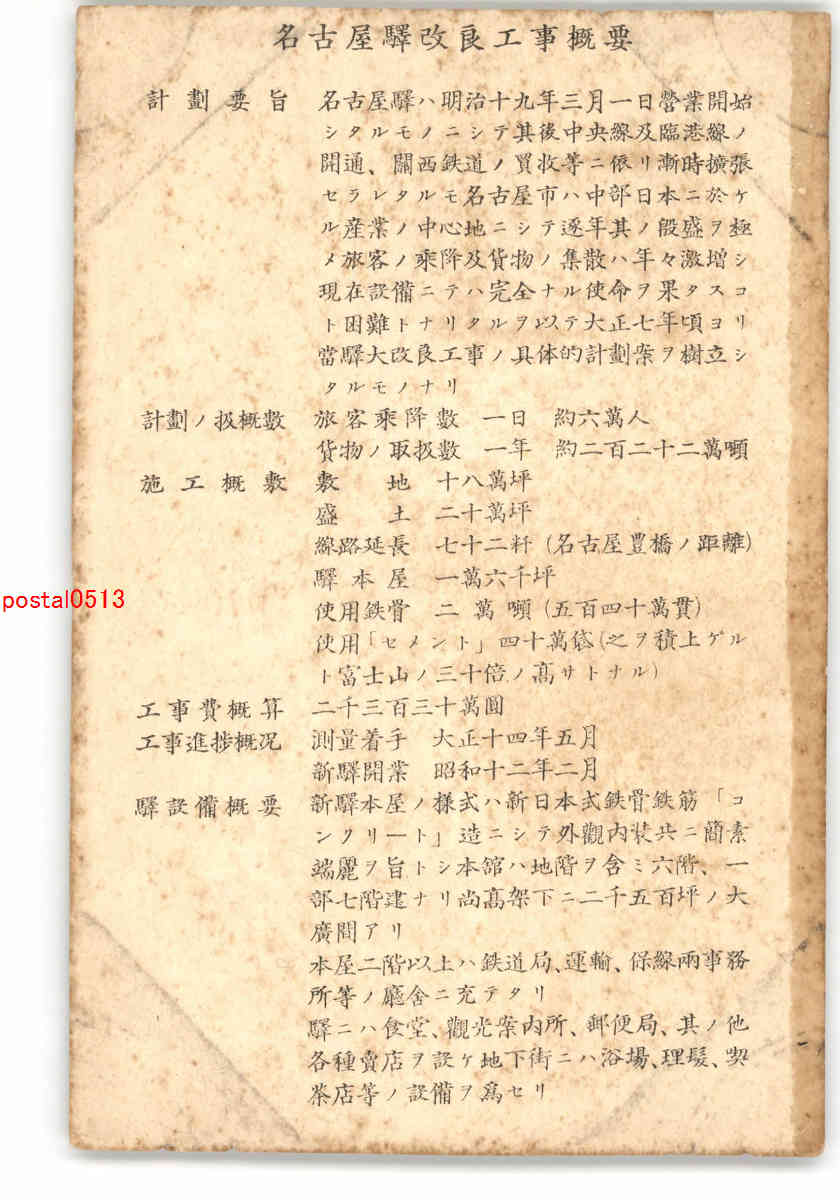 名古屋驛改良工事概要
計劃要旨 名古屋驛ハ明治十九年三月一日營業開始
シタルモノニシテ其後中央線及臨港線ノ
開通、關西鉄道ノ買收等ニ依リ漸時擴張
セラレタルモ名古屋市ハ中部日本ニ於ケ
ル産業ノ中心地ニシテ逐年其ノ殷盛ヲ極
メ旅客ノ乘降及貨物ノ集散ハ年々激增シ
現在設備ニテハ完全ナル使命ヲ果タスコ
ト困難トナリタルヲ以テ大正七年頃ヨリ
當驛大改良工事ノ具体的計劃案ヲ樹立シ
タルモノナリ
計劃ノ扱概數 旅客乘降數 一日 約六萬人
貨物ノ取扱數 一年 約二百二十二萬噸
施工概敷 敷地 十八萬坪
盛土 二十萬坪
線路延長 七十二粁(名古屋豊橋ノ距離)
驛本屋 一萬六千坪
使用鉄骨 二萬噸(五百四十萬貫)
使用「セメント」四十萬袋(之ヲ積上ゲル
ト富士山ノ三十倍ノ高サトナル)
工事費概算 二千三百三十萬圓
工事進捗概况 測量着手 大正十四年五月
新驛開業 昭和十二年二月
驛設備概要 新驛本屋ノ様式ハ新日本式鉄骨鉄筋「コ
ンクリート」造ニシテ外觀内装共ニ簡素
端麗ヲ旨トシ本舘ハ地階ヲ含ミ六階、一
部七階建ナリ尚高架下ニ二千五百坪ノ大
廣間アリ
本屋二階以上ハ鉄道局、運輸、保線兩事務
所等ノ廳舍ニ充テタリ
驛ニハ食堂、觀光案内所、郵便局、其ノ他
各種賣店ヲ設ケ地下街ニハ浴場、理髮、喫
茶店等ノ設備ヲ爲セリ
postal0513